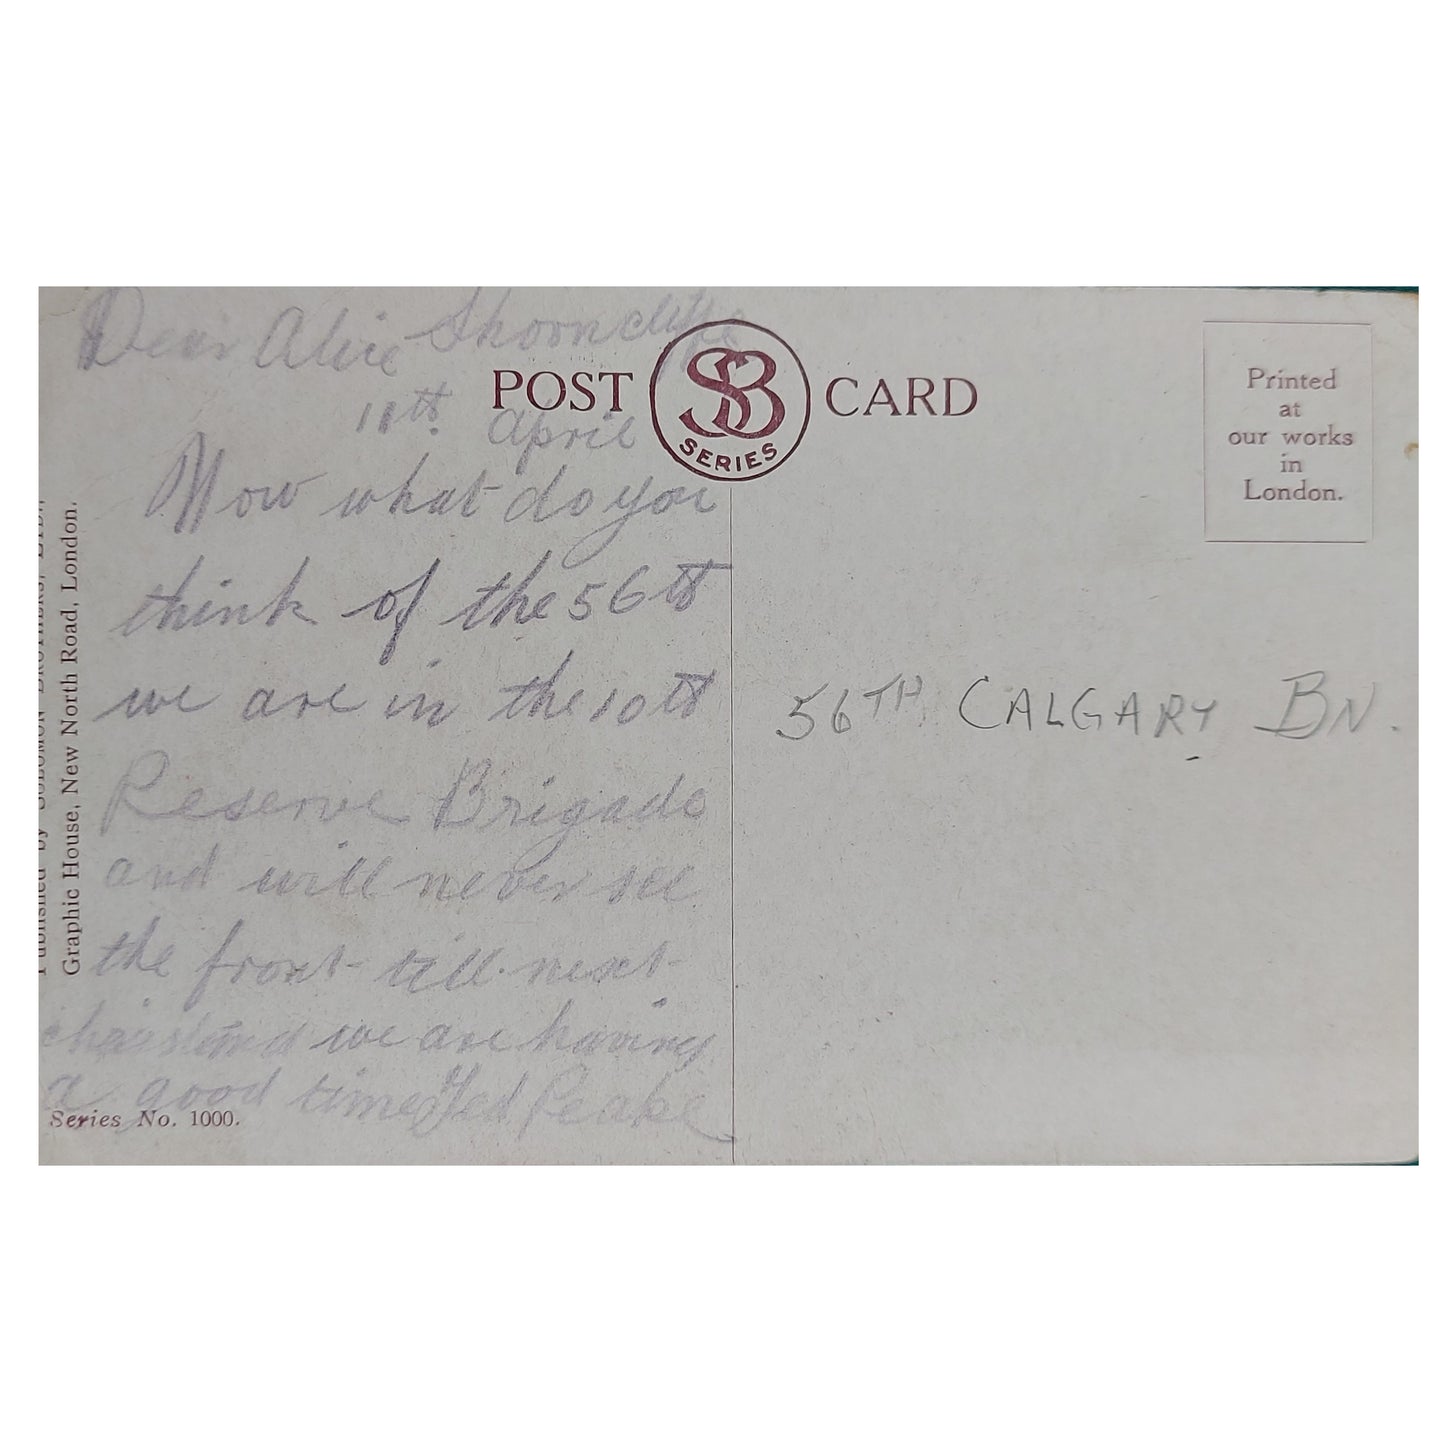 Dear Alice Shorncliffe
11th. April
POST CARD
SB
SERIES
Printed
at
our works
in
London.
Now what do you
think of the 56th
we are in the 10th
Reserve Brigade
and will never see
the front till next
we are having
a good time Peake
56TH CALGARY BN.
Published by SOLOMON BROTHERS, LTD.,
Graphic House, New North Road, London.
Series No. 1000.